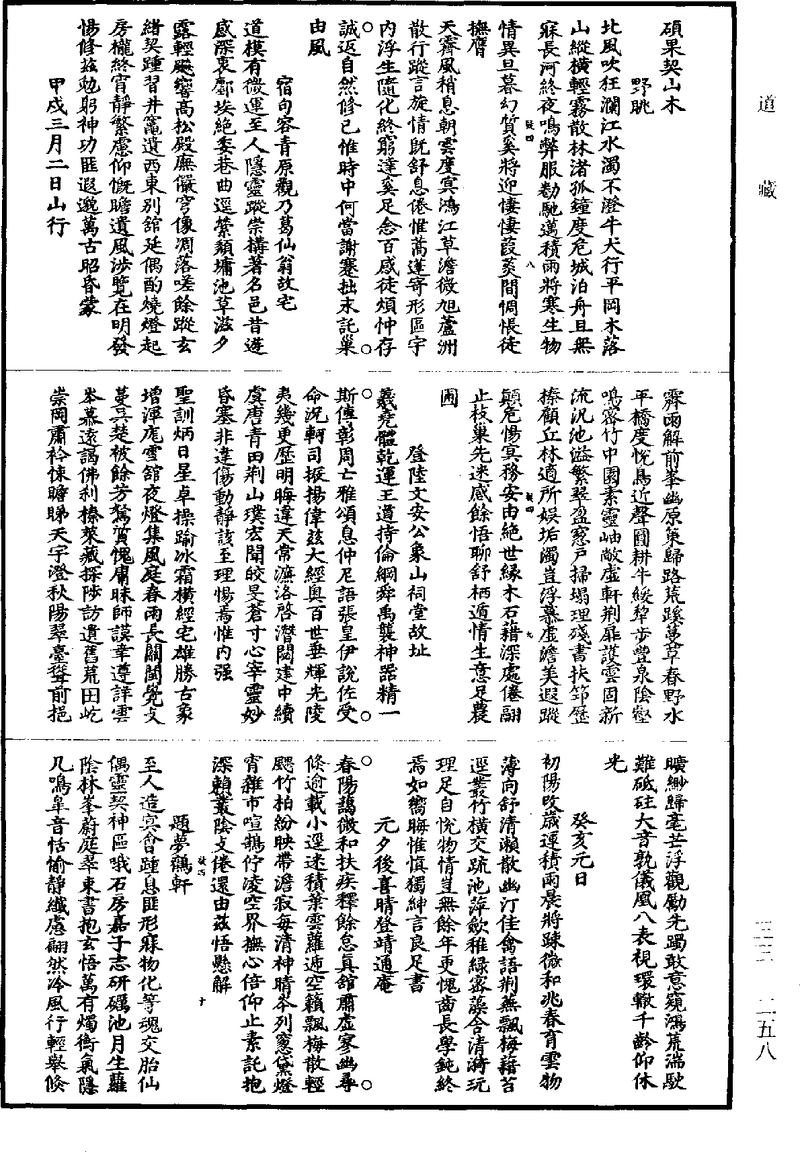 道藏
三三 二五八
碩果契山木
野眺
北風吹狂瀾江水濁不澄牛犬行平岡木落
山縱橫輕霧散林渚孤鐘度危城泊舟且無
寐長河終夜鳴弊服勧馳邁積雨將寒生物
情異旦暮幻質奚將迎悽悽葭菼間惆悵徒
撫膺
天霽風稍息朝雲度冥鴻江草澹微旭蘆洲
散行蹤言旋情旣舒息倦惟蒿蓬寄形區宇
内浮生隨化終窮達奚足念百感徒煩忡存
誠返自然修已惟時中何當謝蹇拙末託巢
由風
宿句容青原觀乃葛仙翁故宅
道模有微運至人隱靈蹤崇構著名邑昔遊
感深衷鄽埃絶委巷曲逕縈頽墉池草滋夕
露輕飈響高松殿廡儼穹像凋落嗟餘蹤玄
緒契踵習井竈遺西東别舘延偶酌燒燈起
房櫳終宵靜繁慮仰慨瞻遺風涉覽在明發
惕修茲勉躬神功匪遐邈萬古昭昏蒙
甲戌三月二日山行
霽雨解前峯幽原策歸路荒蹊萬草春野水
平橋度悅鳥近聲圓耕牛綏犂步豊泉陰壑
鳴密竹中園素靈岫敞虛軒荆扉護雲固新
流汎池溢繁翠盈窻戶掃塌理殘書扶笻歷
榛顧丘林適所娛垢濁豈浮慕虛澹美遐蹤
顛危惕冥務安由絶世緣木石藉深處倦翮
止枝巢先迷感餘悟聊舒栖遁情生意足農
圃
登陸文安公象山祠堂故址
羲堯體乾運王道持倫綱舜禹襲神器精一
斯傳彰周亡雅頌息仲尼語張皇伊説佐受
命況軻司掖揚偉茲大經奥百世垂輝光陵
夷幾更歷明晦違天常濂洛啓潛閟建中續
虞唐青田荆山璞宏闡皎旻蒼寸心宰靈妙
昏塞非違傷動靜該至理惕焉惟内强
聖訓炳日星卓操踰冰霜橫經宅雄勝古象
增渾庬雪舘夜燈集風庭春雨長闢闔覺支
蔓烹楚被餘芳駑質愧庸昧師謨幸遵詳雲
岑慕遠謁佛刹榛萊藏探陟訪遺舊荒田屹
崇岡肅衿悚瞻睇天宇澄秋陽翠臺聳前挹
曠緲歸毫芒浮觀勵先躅敢意窺鴻荒湍駛
難砥砫大音孰儀凰八表視環轍千齡仰休
光
癸亥元日
初陽攺歲運積雨晨將疎微和兆春育雲物
薄向舒清瀨散幽汀佳禽語荆蕪飄梅藉苔
逕叢竹橫交疏池萍歛稚綠窻藻含清漪玩
理足自悅物情豈無餘年更愧齒長學鈍終
焉如嚮晦惟慎獨紳言良足書
元夕後喜晴登靖通庵
春陽藹微和扶疾釋餘怠眞舘肅虛寥幽尋
倏逾載小逕迷積葉雲蘿遞空籟飄梅散輕
颸竹柏紛映帶澹寂每清神晴岑列窻黛燈
宵雜市喧鵲佇凌空界撫心倍仰止素託抱
深賴叢陰支倦還由茲悟懸解
題夢鶴軒
至人造冥會踵息匪形寐物化等魂交胎仙
偶靈契神區哦石房嘉子志研礪池月生蘿
陰林峯蔚庭翠東書抱玄悟萬有燭衛氣隱
几鳴臯音恬愉靜纖慮翩然冷風行輕舉倏